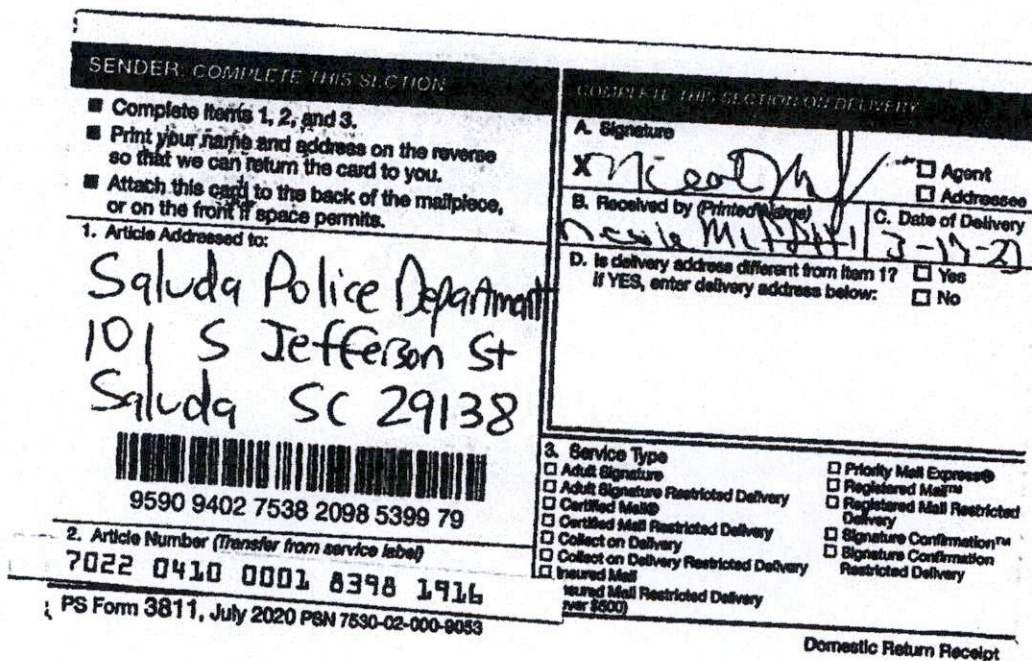 SENDER: COMPLETE THIS SECTION
■ Complete items 1, 2, and 3.
■ Print your name and address on the reverse
so that we can return the card to you.
■ Attach this card to the back of the mailpiece,
or on the front if space permits.
1. Article Addressed to:
Saluda Police Department
101 S Jefferson St
Saluda SC 29138
9590 9402 7538 2098 5399 79
2. Article Number (Transfer from service label)
7022 0410 0001 8398 1916
PS Form 3811, July 2020 PSN 7530-02-000-9053
COMPLETE THIS SECTION ON DELIVERY
A. Signature
X
□ Agent
□ Addressee
B. Received by (Printed Name)
C. Date of Delivery
D. Is delivery address different from item 1? □ Yes
If YES, enter delivery address below: □ No
3. Service Type
□ Adult Signature
□ Adult Signature Restricted Delivery
□ Certified Mail®
□ Certified Mail Restricted Delivery
□ Collect on Delivery
□ Collect on Delivery Restricted Delivery
□ Insured Mail
nsured Mail Restricted Delivery
ver $500)
□ Priority Mail Express®
□ Registered Mail™
□ Registered Mail Restricted
Delivery
□ Signature Confirmation™
□ Signature Confirmation
Restricted Delivery
Domestic Return Receipt